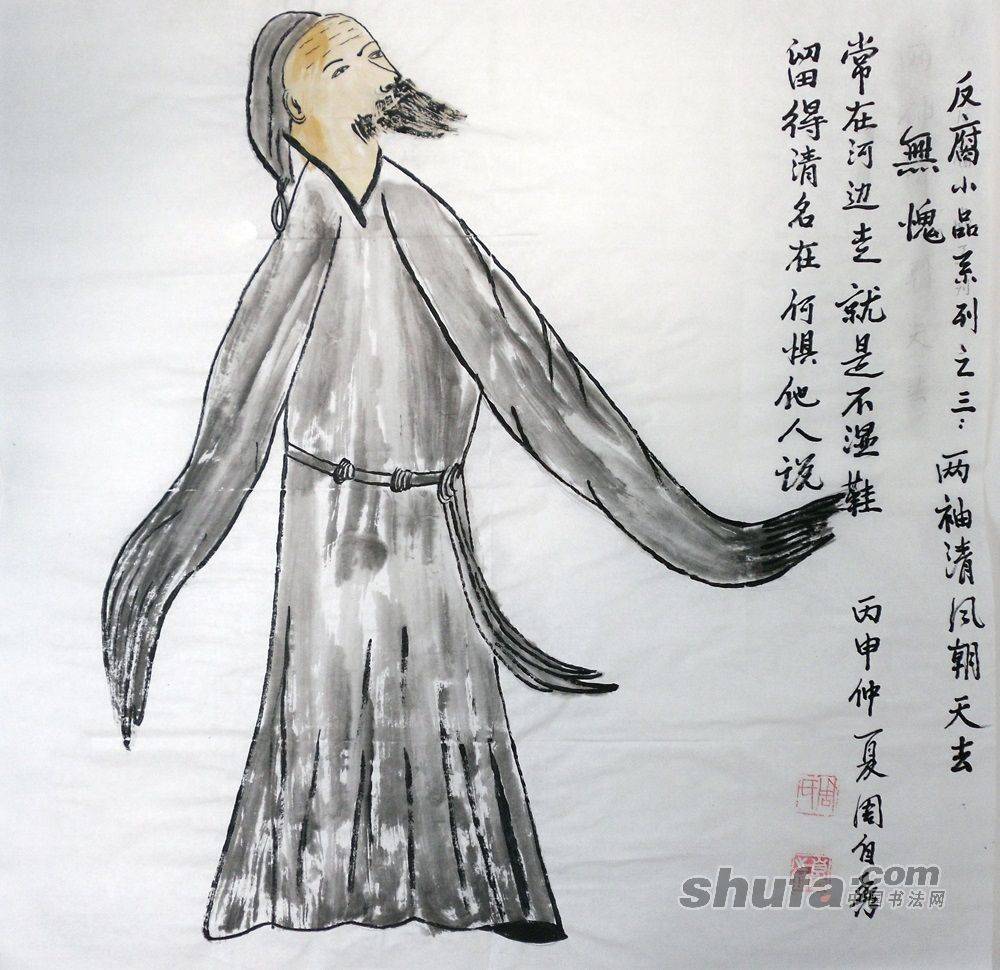 反腐小品系列之三：两袖清风朝天去
無愧
常在河边走 就是不湿鞋
留得清名在 何惧他人说
丙申仲夏周自秀
shufa.com
中国书法网